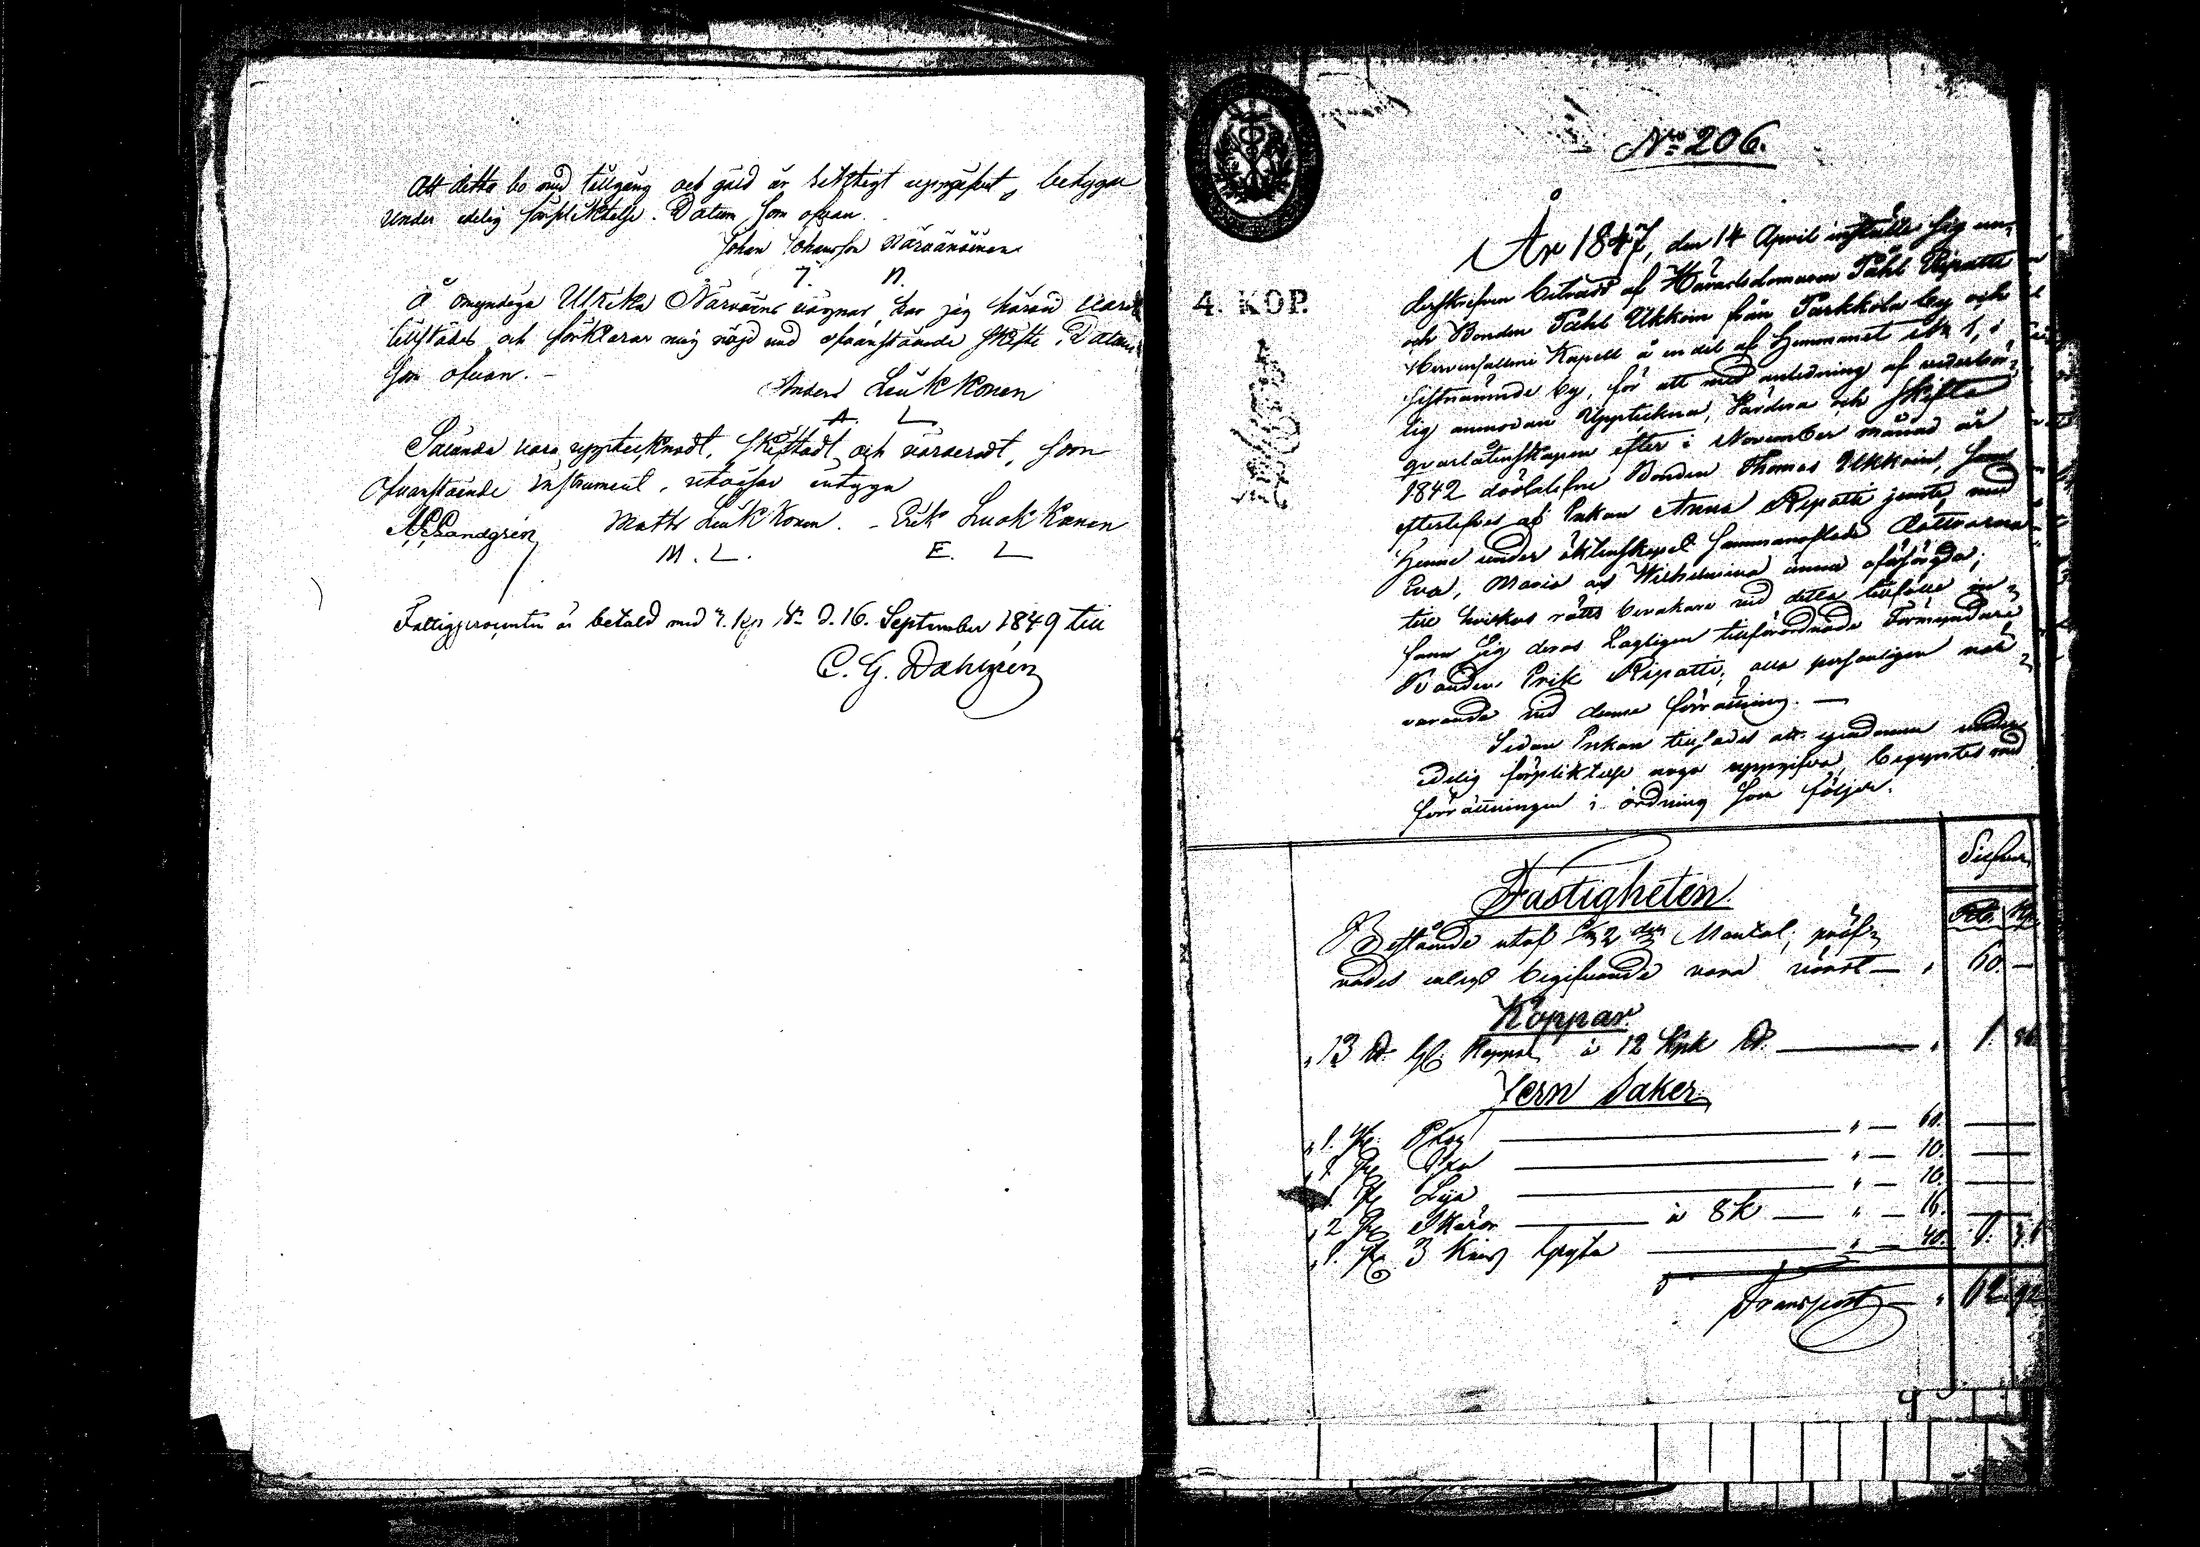 Att detta bo med tillgång och gäld är riktigt uppgifvet, betygar
under edelig förpliktelse. Datum som ofvan.
Johan Johansson Närvänäinen
J. N.
Å omyndiga Ulrika Närvänens vägnar har jag härvid varit
tillstädes och förklarar mig nöjd med ofvanstående skifte. Datum
som ofvan. –
Anders Liukkonen
A. L.
Sålunda vara upptecknadt, skiftadt och värderadt, som
ofvanstående instrument utvisar intyga
Sandgrén Matts Liukkonen. – Erik Luokkanen
M. L. E. L
Fattigprocenten är betald med 7. kop Sr d. 16. September 1849 till
C. G. Dahlgrén
No 206.
4. KOP.
År 1847, den 14 April inställde sig un-
dertecknad biträdd af Häradsdomaren Påhl Ripatti
och Bonden Påhl Ukkoin från Parkkola by och
Kapell å en del af Hemmanet No 1, i
sistnämnde by, för att med anledning af vederbör-
lig anmodan Uppteckna, Värdera och Skifta
qvarlåtenskapen efter i November månad år
1842 dödblefne Bonden Thomas Ukkoin, som
efterlefves af Enkan Anna Ripatti jemte, med
Henne under äktenskapet sammanaflade döttrarna
Eva, Maria och Wilhelmina ännu oförsörgda;
till hvilkas rätts bevakare vid detta tillfälle in-
fann sig deras Lagligen tillförordnade Förmyndare
Bonden Erik Ripatti, alla personligen när-
varande vid denna förrättning. —
Sedan Enkan tillsades att egendomen under
edelig förpliktelse noga uppgifva, begyntes med
förrättningen i ordning som följer.
Silfver
Fastigheten Rub. Kp.
Bestående utaf Mantal; pröf-
vades enligt begifvande vara värdt — " 60. —
Koppar
" 13 ℔ Gl. Koppar à 12 Kpk ℔ — " 1.
Jern Saker
" 1. st. Plog — " — 60.
" 1. st. Yxa — " — 10.
1. st. Lija — " — 10.
" 2 st. Skäror — à 8k — " — 16.
" 1. st. 3 Kans Gryta — " — 40. 1.
Transport — " 62 92